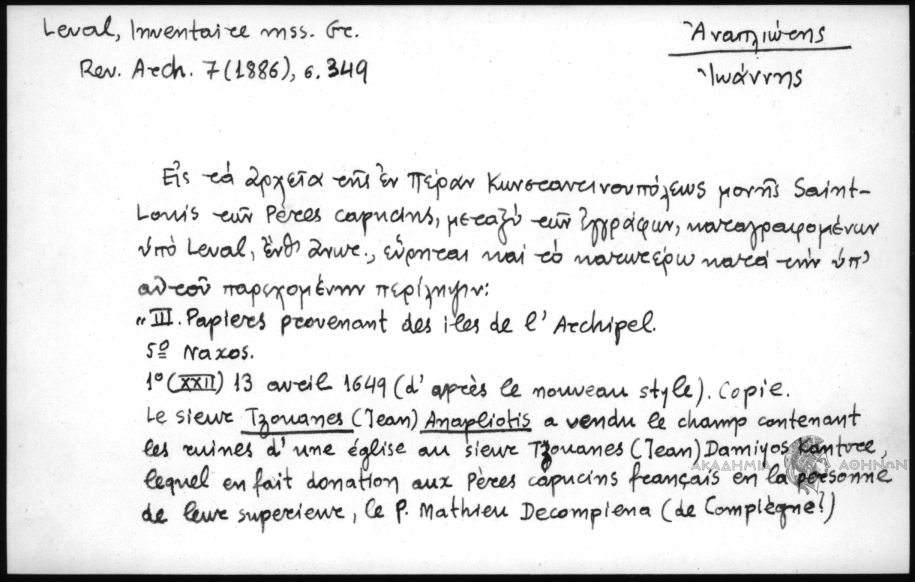 Leval, Inventaire mss. Gr.
Rev. Arch. 7 (1886), σ. 349
Ἀναπλιώτης
Ἰωάννης
Εἰς τά ἀρχεῖα τῆς ἐν Πέραν Κωνσταντινουπόλεως μονῆς Saint-
Louis τῶν Pères capucins, μεταξύ τῶν ἐγγράφων, καταγραφομένων
ὑπό Leval, ἔνθ' ἄνωτ., εὕρηται καί τό κατωτέρω κατά τήν ὑπ'
αὐτοῦ παρεχομένην περίληψιν:
„III. Papiers provenant des iles de l'Archipel.
5º Naxos.
1º (XXII) 13 avril 1649 (d'après le nouveau style). Copie.
Le sieur Tzouanes (Jean) Anapliotis a vendu le champ contenant
les ruines d'une église au sieur Tzouanes (Jean) Damigos Kantre,
lequel en fait donation aux Pères capucins français en la personne
de leur superieur, le P. Mathieu Decompiena (de Complègne?)
ΑΚΑΔΗΜΙΑ ΑΘΗΝΩΝ